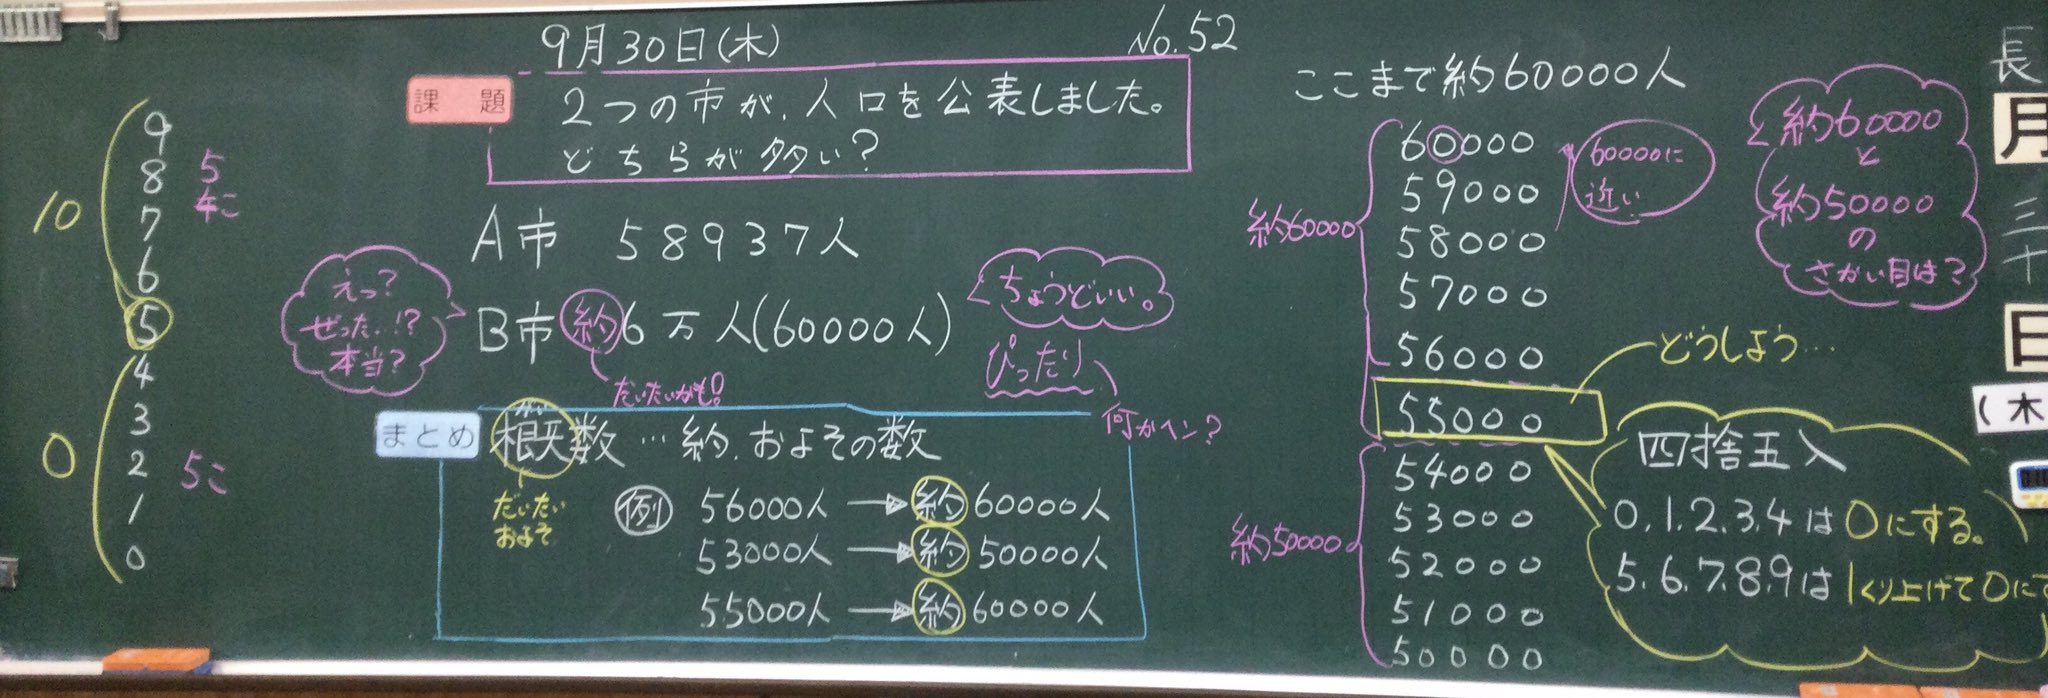 9月30日(木)
No.52
課題
2つの市が、人口を公表しました。
どちらが多い?
A市 58937人
B市 約6万人(60000人)
えっ?
ぜった..!?
本当?
だいたいかも!
ちょうどいい。
ぴったり
何かヘン?
まとめ
がい
概数…約、およその数
だいたい
およそ
例 56000人→約60000人
53000人→約50000人
55000人→約60000人
9
8
7
6
5
4
3
2
1
0
10
0
5
こ
5こ
ここまで約60000人
60000
59000
58000
57000
56000
55000
54000
53000
52000
51000
50000
約60000
約50000
60000に
近い
約60000
と
約50000
の
さかい目は?
どうしよう…
四捨五入
0.1.2.3.4は0にする。
5.6.7.8.9は1くり上げて0に
長
月
三
十
日
(木